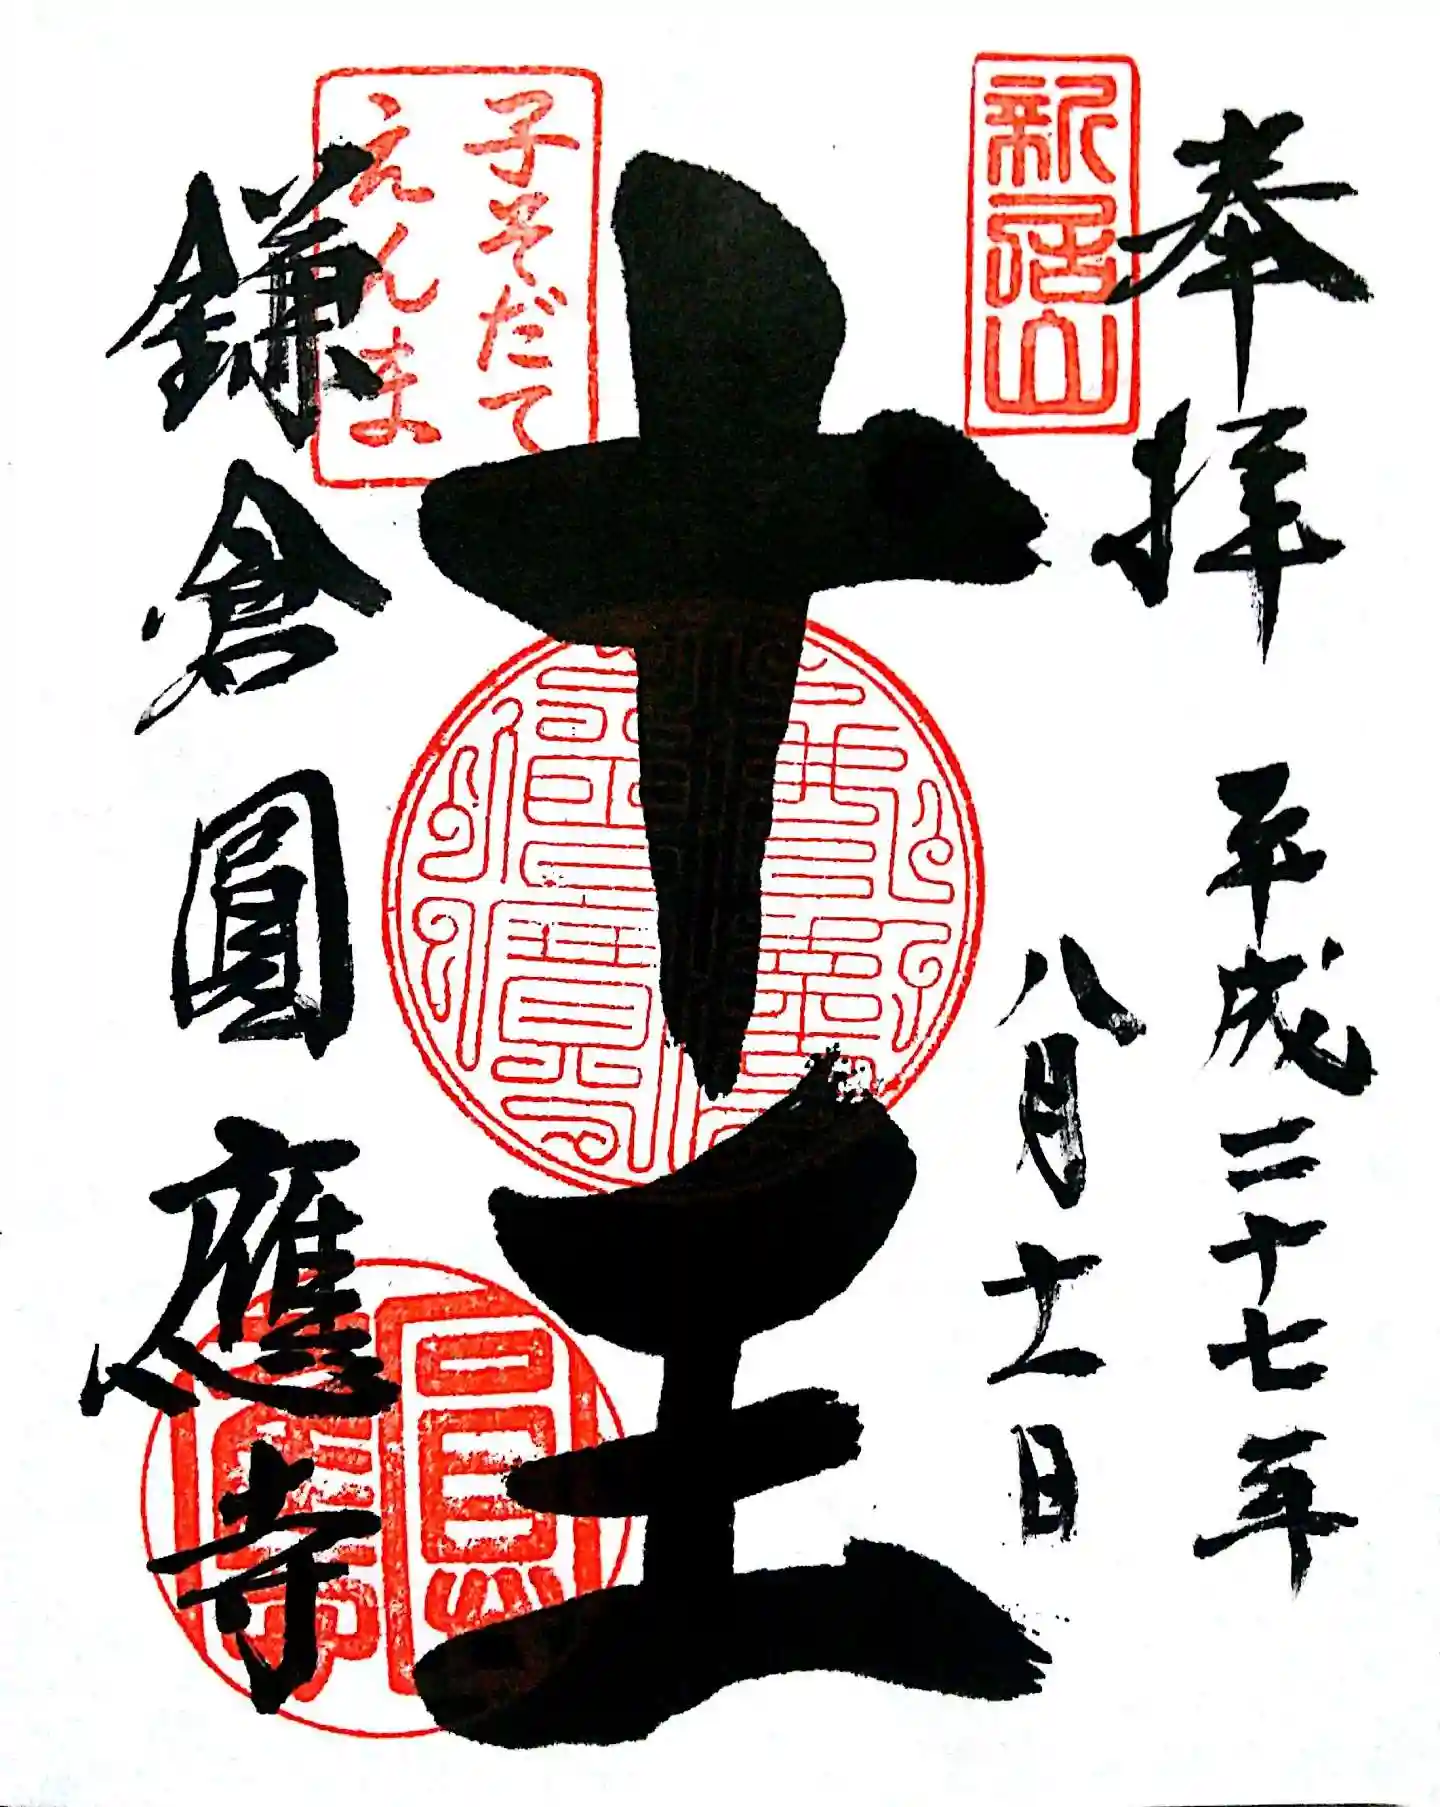 奉拝
新居山
平成二十七年
八月十一日
十王
子そだて
えんま
鎌倉圓應寺